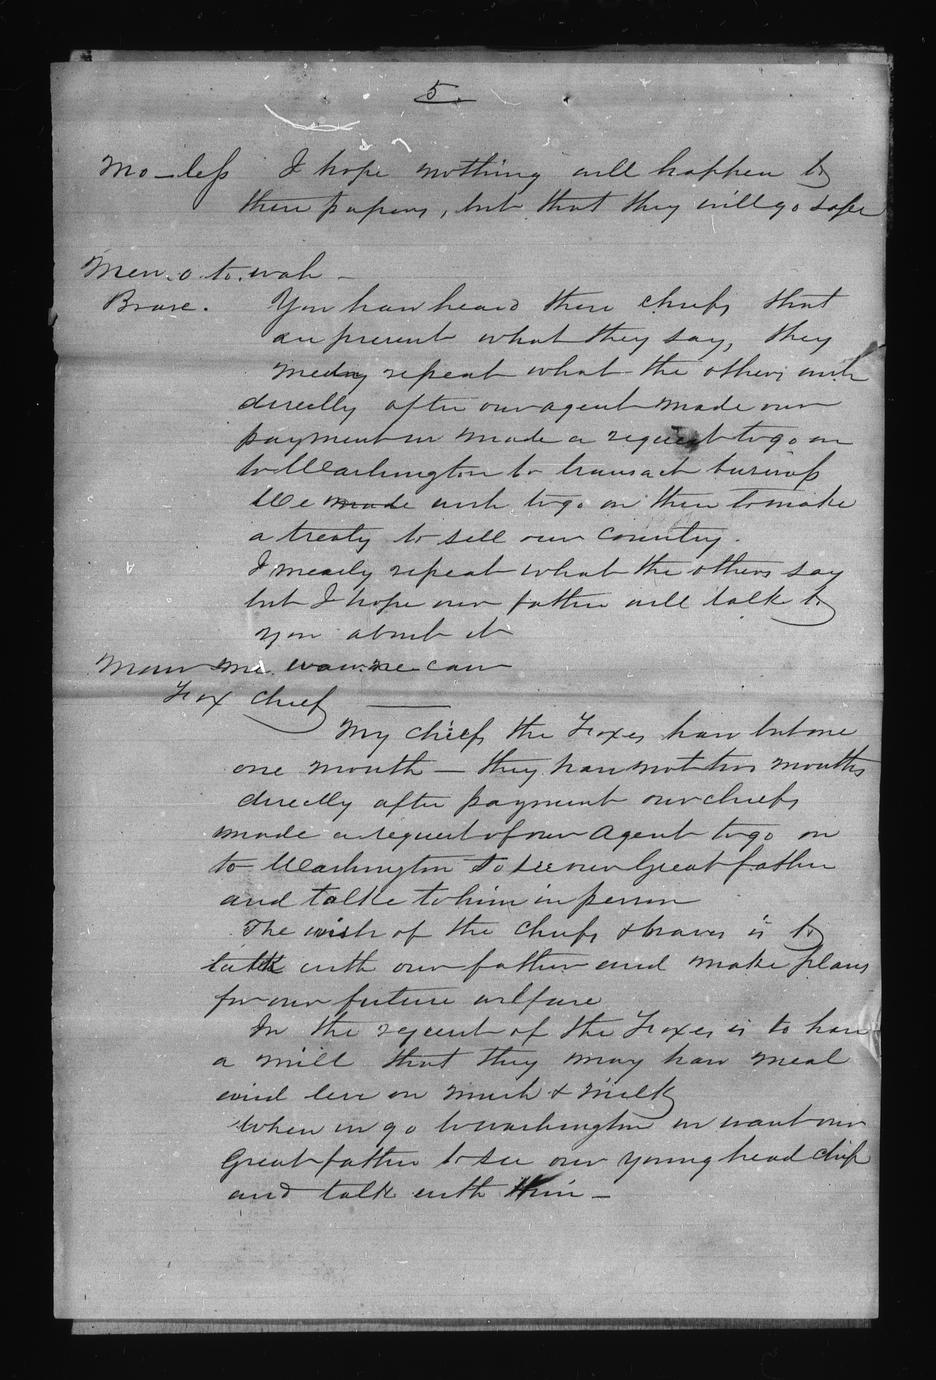 5.
Mo-less I hope nothing will happen to
these papers, but that they will go safe
Men.o.to.wah -
Brave. You have heard these chiefs that
are present what they say, they
repeat what the others wish
directly after our agent made our
payment we made a request to go on
to Washington to transact business
We made wish to go on there to make
a treaty to sell our country.
I merely repeat what the others say
but I hope our father will talk to
you about it
Maw me. waw.ne caw
Fox Chief
My chiefs the Foxes have but one
one mouth — they have not two mouths
directly after payment our chiefs
made a request of our Agent to go on
to Washington to see our Great father
and talk to him in person
The wish of the Chiefs & braves is to
talk with our father and make plans
for our future welfare
In the request of the Foxes is to have
a mill that they may have meal
and live on mush & milk
When we go to Washington we want our
Great father to see our young head chief
and talk with him —